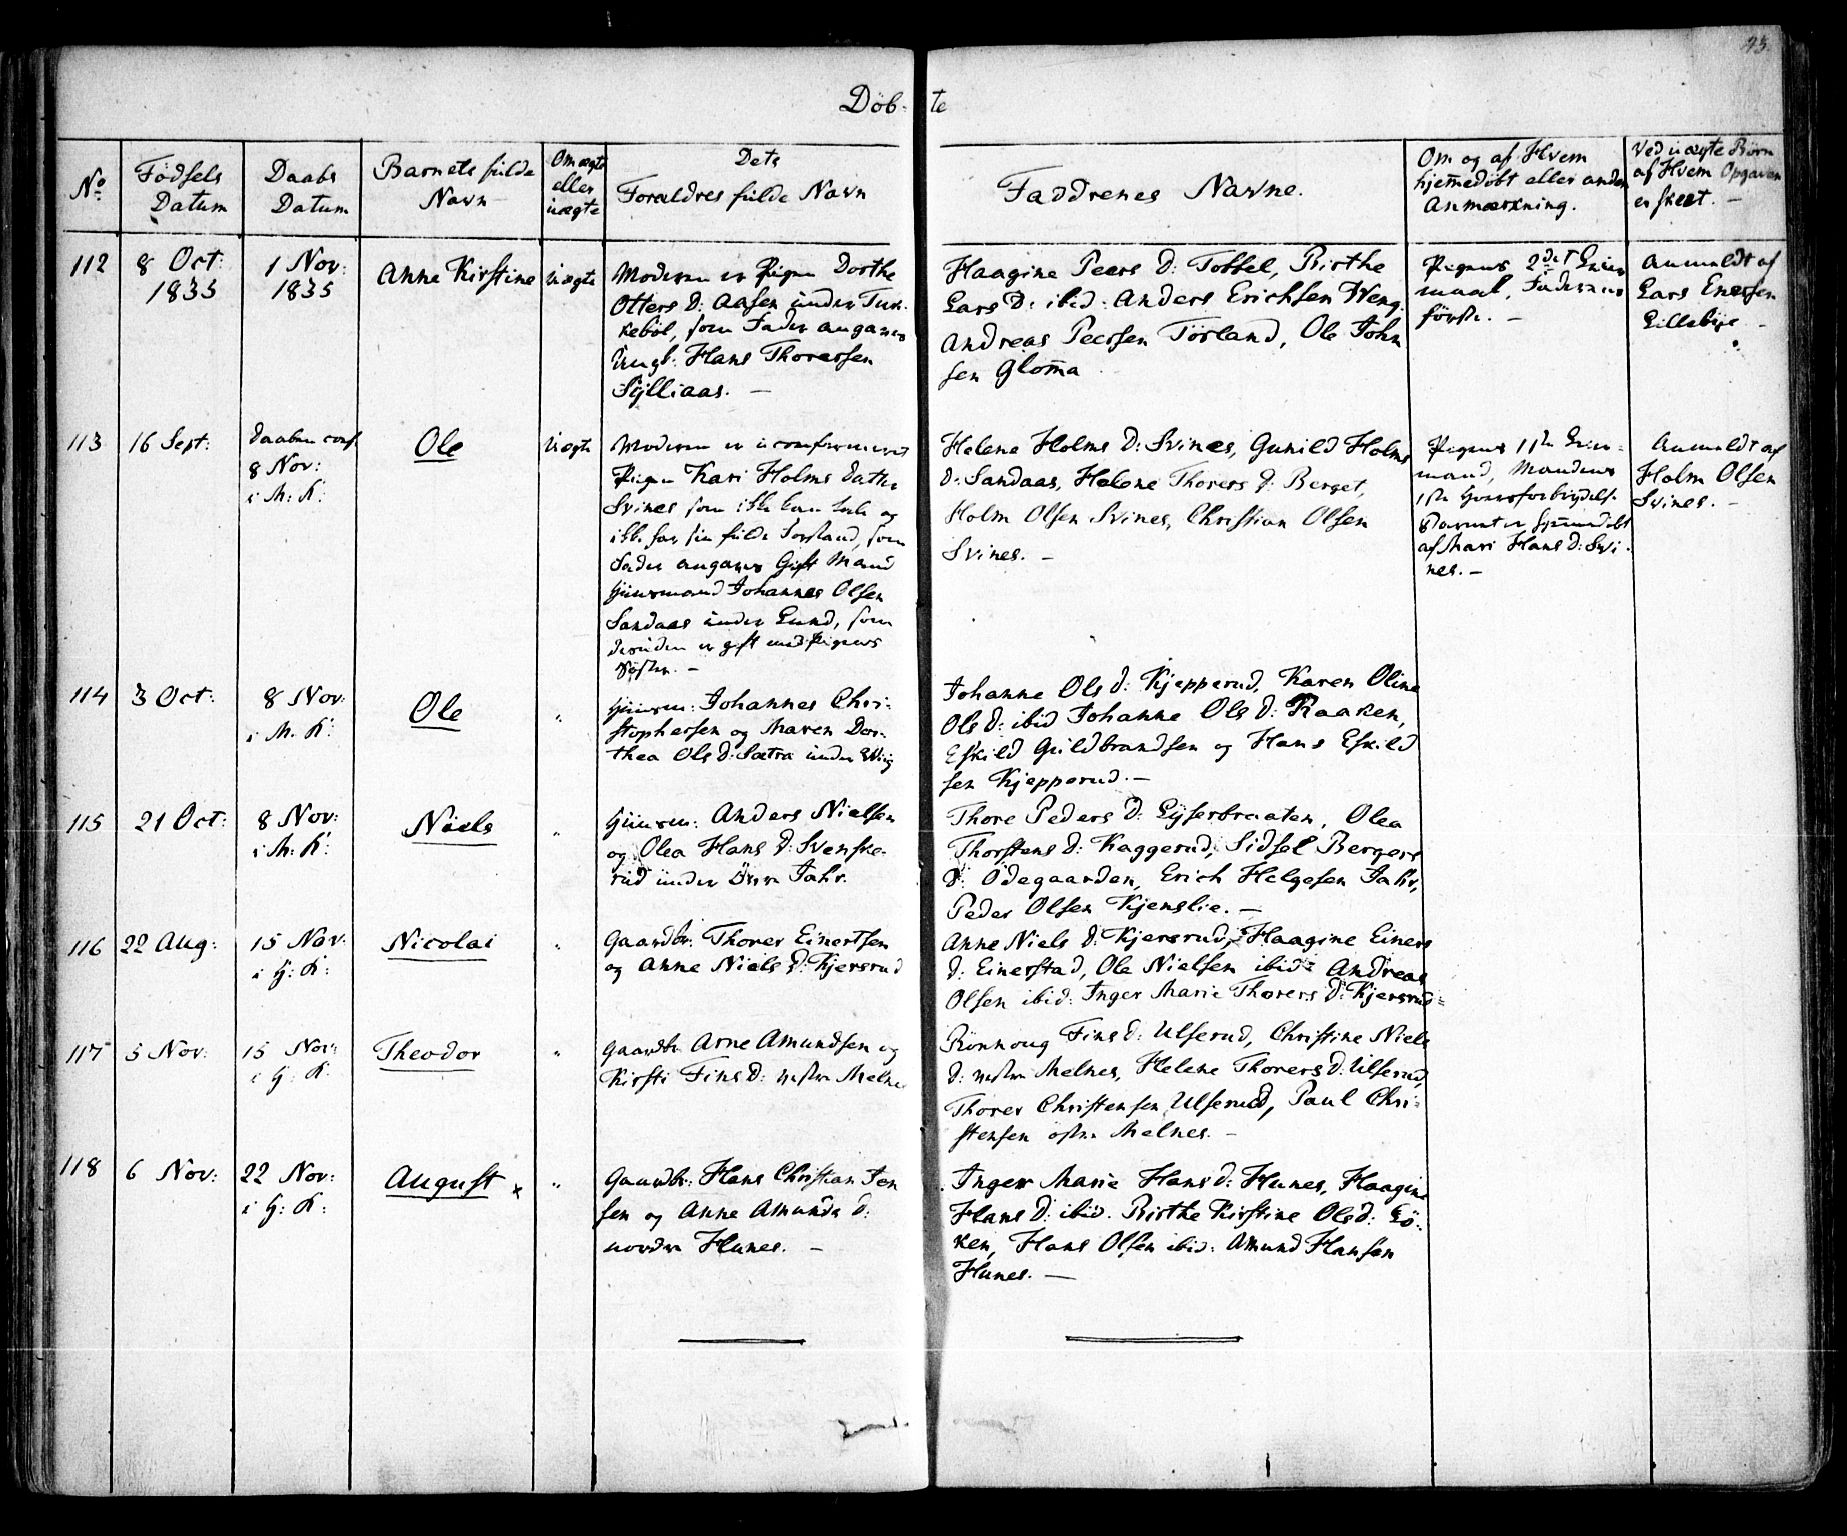 93.
Döb- te
No
Födsels Datum
Daabs Datum
Barnets fulde Navn
Om ægte eller uægte
Dets Foraldres fulde Navn
Faddrenes Navne.
Om og af Hvem hjem̄edöbt eller anden Anmærkning.
Ved uægte Börn af Hvem Opgaven er skeet. –
112
8 Oct: 1835
1 Nov: 1835
Anne Kirstine
Uægte
Moderen er Pigen Dorthe
Otters D: Aasen under Tuk-
kebøl, som Fader angaves
Ungk: Hans Thoressen
Sÿlliaas. –
Haagine Peers D: Tossel, Birthe
Lars D: ibid: Anders Erichsen Weng
Andreas Peersen Törland, Ole John
sen Glom̄a
Pigens 2det Leier
maal, Faderens
förste. –
Anmeldt af
Lars Enersen
Lillebÿe –
113
16 Sept:
Daaben conf.
8 Nov:
i M: K:
Ole
Uægte
Moderen er uconfirmeret
Pigen Kari Holms Datter
Svines som ikke kan tale og
ikke har sin fulde Forstand, som
Fader angaves Gift Mand
Huusmand Johannes Olsen
Sandaas under Lund, som
desuden er gift med Pigens
Söster. –
Helene Holms D: Svines, Gunild Holms
D: Sandaas, Helene Thorers D: Berget,
Holm Olsen Svines, Christian Olsen
Svines. –
Pigens 1ste Leier-
maal, Mandens
1ste Hoersforbrydelse
Barnet er hjem̄edöbt
af Mari Hans D: Svi-
nes. –
Anmeldt af
Holm Olsen
Svines. –
114
3 Oct:
8 Nov:
i M. K:
Ole
"
Huusm: Johannes Chri-
stophersen og Maren Dor-
thea Ols D: Sætra under Wiig
Johanne Ols D: Kjepperud, Karen Oline
Ols D: ibid Johanne Ols D: Raaken,
Eskild Guldbrandsen og Hans Eskild
sen Kjepperud. –
115
21 Oct:
8 Nov:
i M: K:
Niels
"
Huusm: Anders Nielsen
og Olea Hans D: Svenske-
rud under Övre Jahr.
Thore Peders D: Lÿserbraaten, Olea
Thorstens D: Kaggerud, Sidsel Bergers
D: Ödegaarden, Erich Helgesen Jahr,
Peder Olsen Kjenslie. –
116
22 Aug:
15 Nov:
i H: K:
Nicolai
"
Gaardbr: Thorer Einertsen
og Anne Niels D: Kjersrud
Anne Niels D: Kjersrud, Haagine Einers
D: Einerstad, Ole Nielsen ibid: Andreas
Olsen ibid: Inger Marie Thorers D: Kjersrud=
117
5 Nov:
15 Nov:
i H: K:
Theodor
"
Gaardbr Arne Amundsen og
Kirsti Fins D: vestre Melnes
Rönnoug Fins D: Ulserud, Christine Niels
D: vestre Melnes, Helene Thorers D: Ulserud,
Thorer Christensen Ulserud, Paul Chri-
stensen östre Melnes. –
118
6 Nov:
22 Nov:
i H: K:
August x
"
Gaardbr: Hans Christian Jen
sen og Anne Amunds D:
nordre Hunes. –
Inger Marie Hans D: Hunes, Haagine
Hans D: ibid. Birthe Kirstine Ols D: Lö-
ken, Hans Olsen ibid: Amund Hansen
Hunes. –